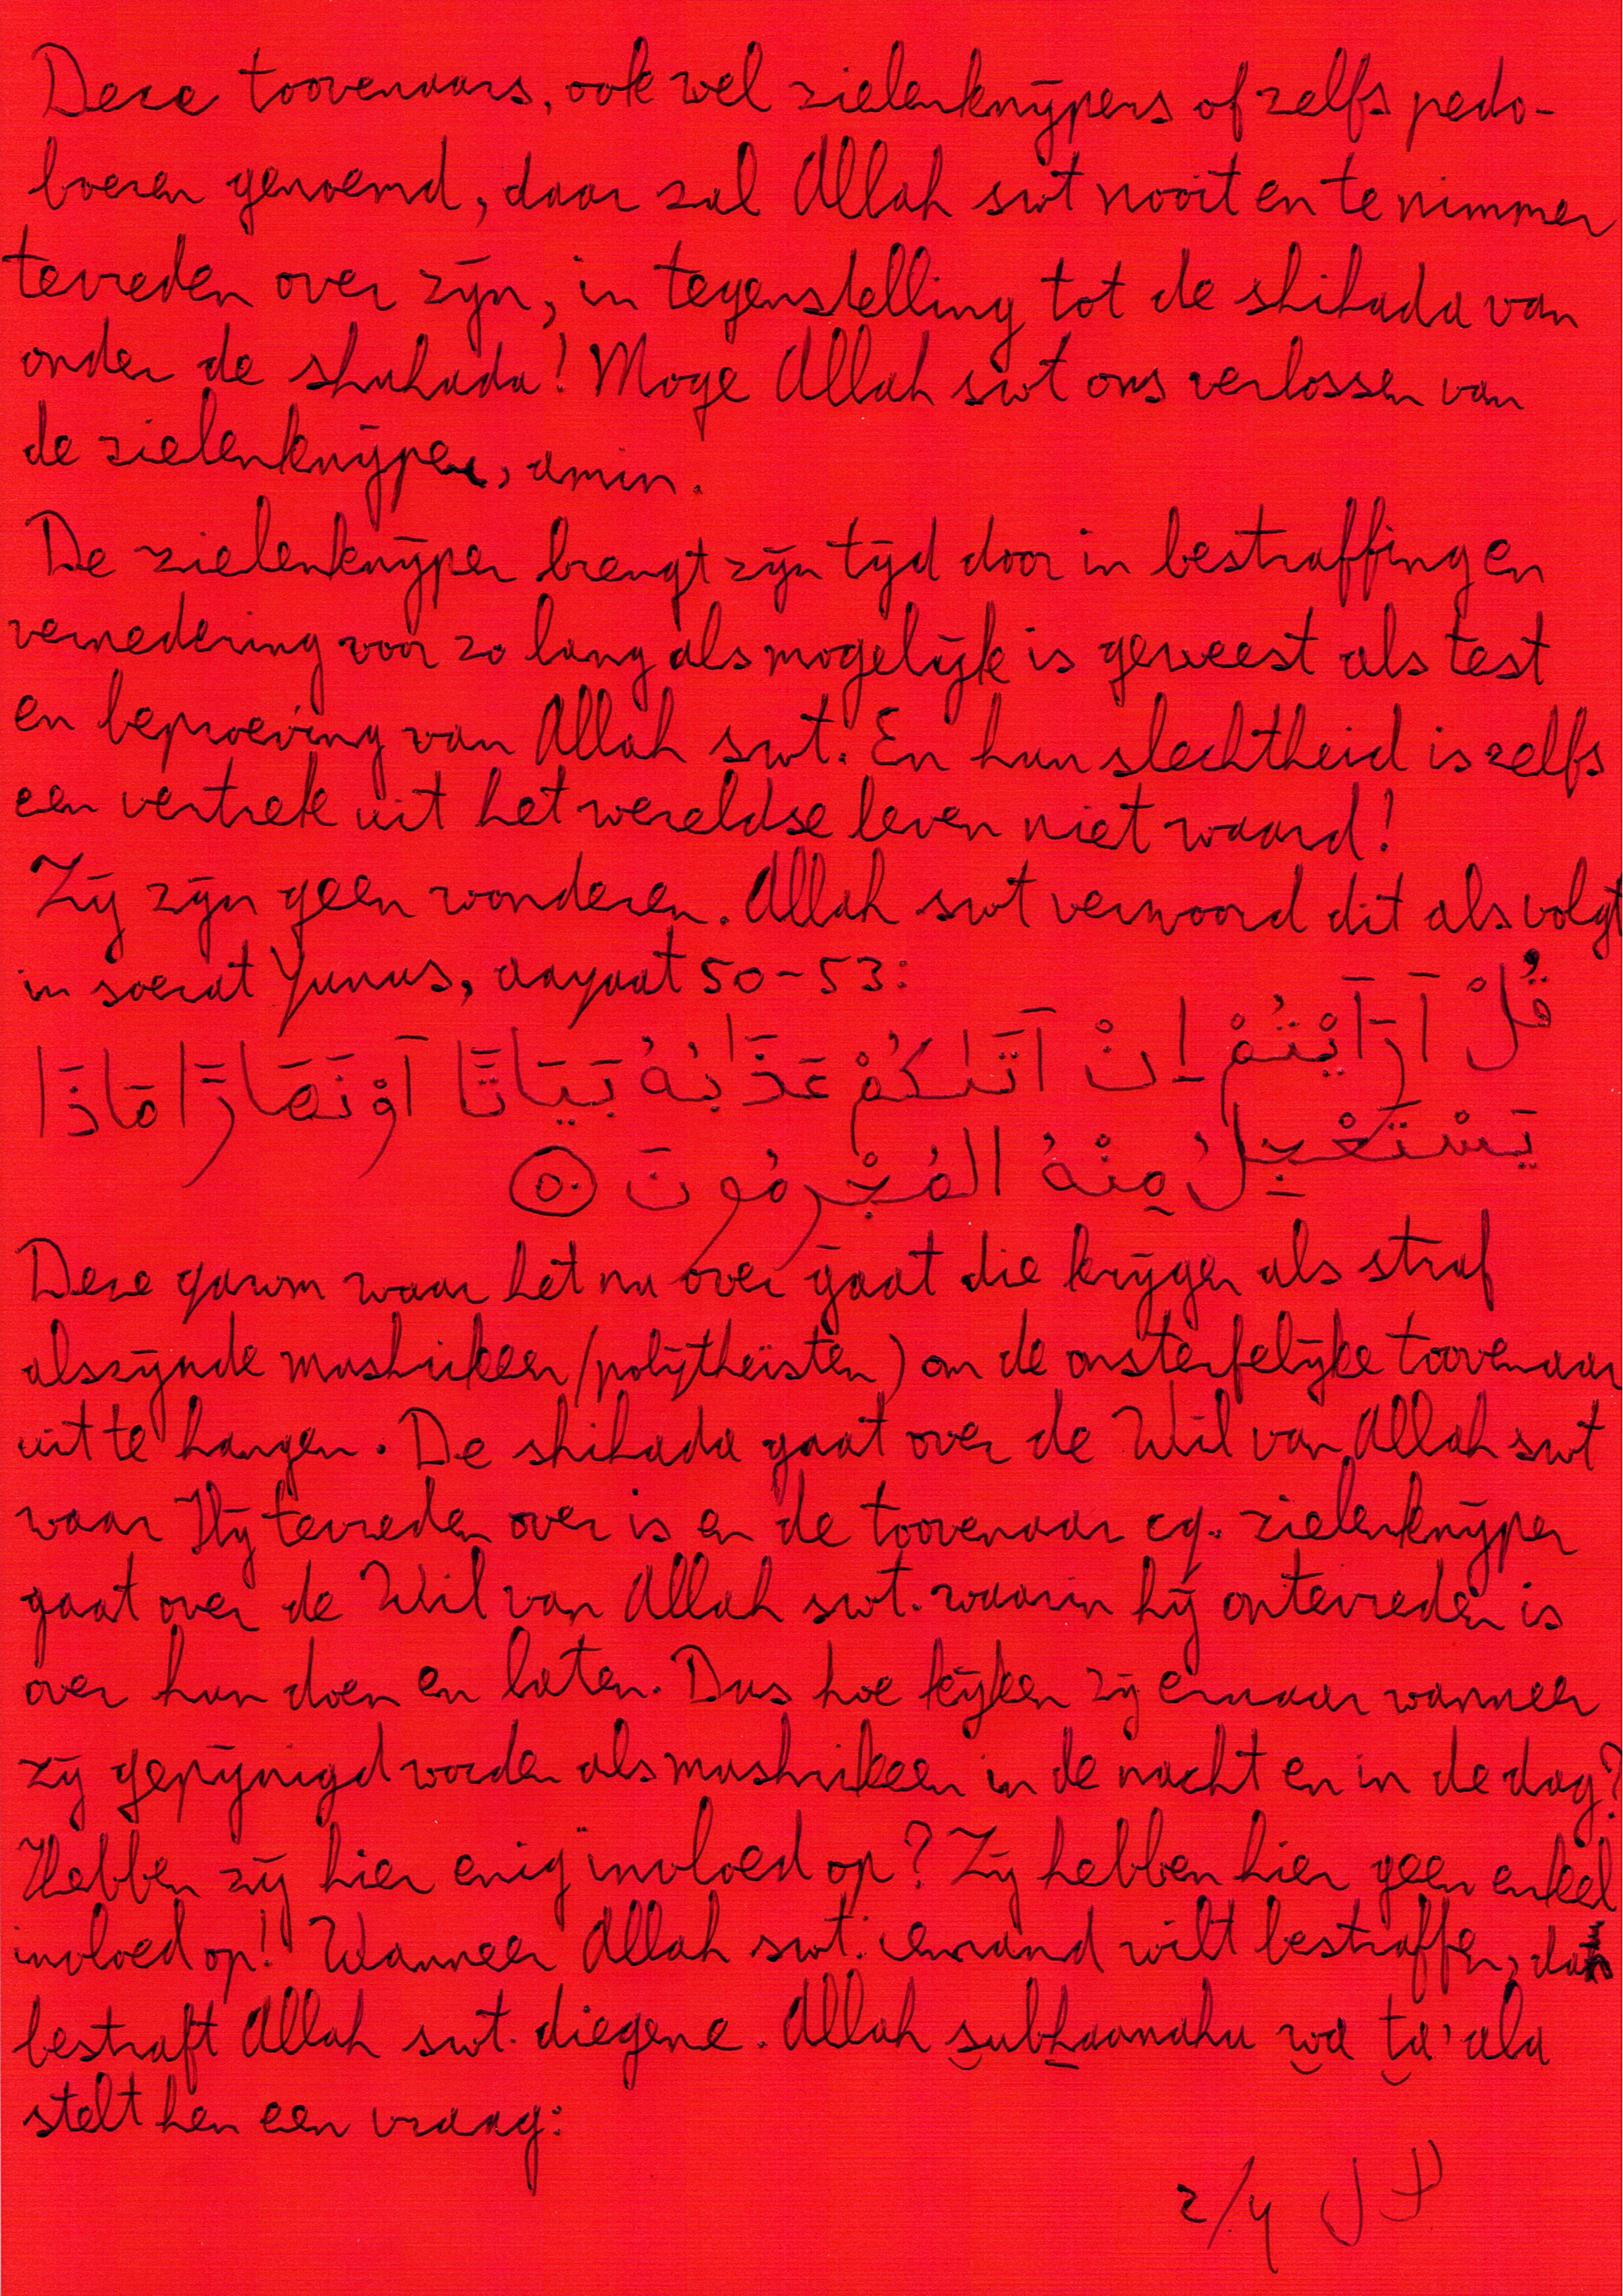 Deze toovenaars, ook wel zielenknijpers of zelfs pedo-
boeren genoemd, daar zal Allah swt nooit en te nimmer
tevreden over zijn, in tegenstelling tot de shihada van
onder de shuhada! Moge Allah swt ons verlossen van
de zielenknijper, amin.
De zielenknijper brengt zijn tijd door in bestraffing en
vernedering voor zo lang als mogelijk is geweest als test
en beproeving van Allah swt. En hun slechtheid is zelfs
een vertrek uit het wereldse leven niet waard!
Zij zijn geen wonderen. Allah swt verwoord dit als volgt
in soerat Yunus, aayaat 50-53:
قُلْ اَرَاَيْتُمْ اِنْ اَتٰىكُمْ عَذَابُهُ بَيَاتًا اَوْ نَهَارًا مَاذَا
يَسْتَعْجِلُ مِنْهُ المُجْرِمُونَ ٥٠
Deze qawm waar het nu over gaat die krijgen als straf
alszijnde mushrikeen (polytheïsten) om de onsterfelijke toovenaar
uit te hangen. De shihada gaat over de Wil van Allah swt
waar Hij tevreden over is en de toovenaar cq. zielenknijper
gaat over de Wil van Allah swt. waarin hij ontevreden is
over hun doen en laten. Dus hoe kijken zij ernaar wanneer
zij gepijnigd worden als mushrikeen in de nacht en in de dag?
Hebben zij hier enig invloed op? Zij hebben hier geen enkel
invloed op! Wanneer Allah swt. iemand wilt bestraffen, dan
bestraft Allah swt. diegene. Allah subhaanahu wa ta'ala
stelt hen een vraag:
2/4